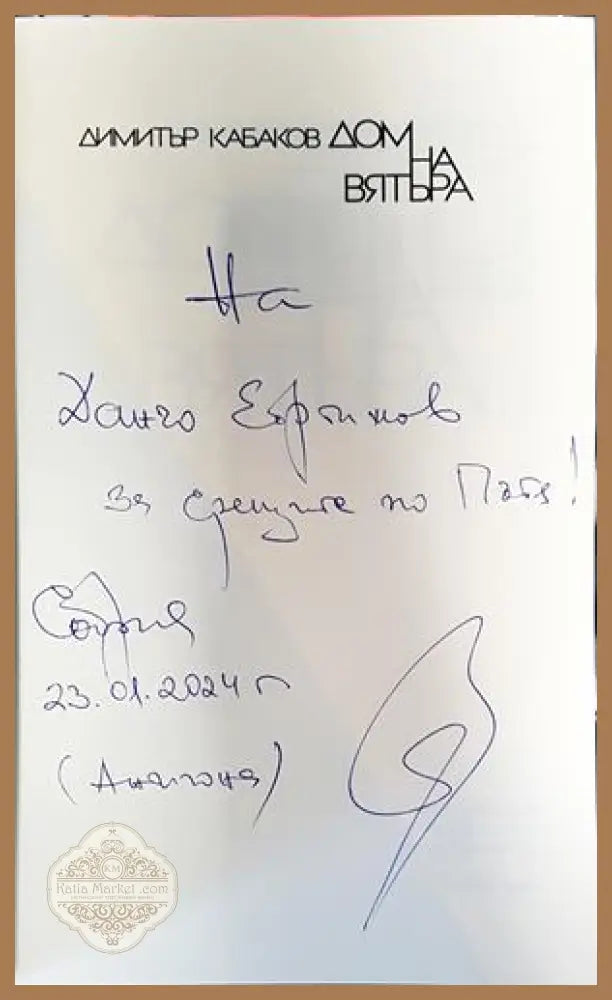 ДИМИТЪР КАБАКОВ ДОМ
НА
ВЯТЪРА
На
Данчо Ефтимов
за срещите по Пътя!
София
23.01.2024 г
KM
Katia Market .com